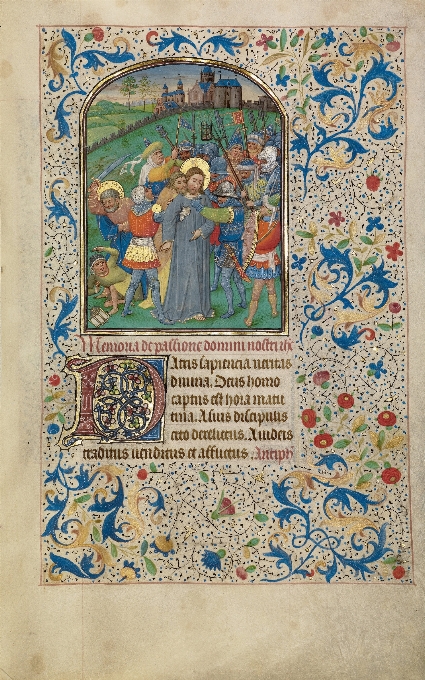 Memoria de passione domini nostri ihc
Patris sapiencia veritas
divina. Deus homo
captus est hora matu
tina. A suis discipulis
cito derelictus. A iudeis
traditus venditus et afflictus. Antiph